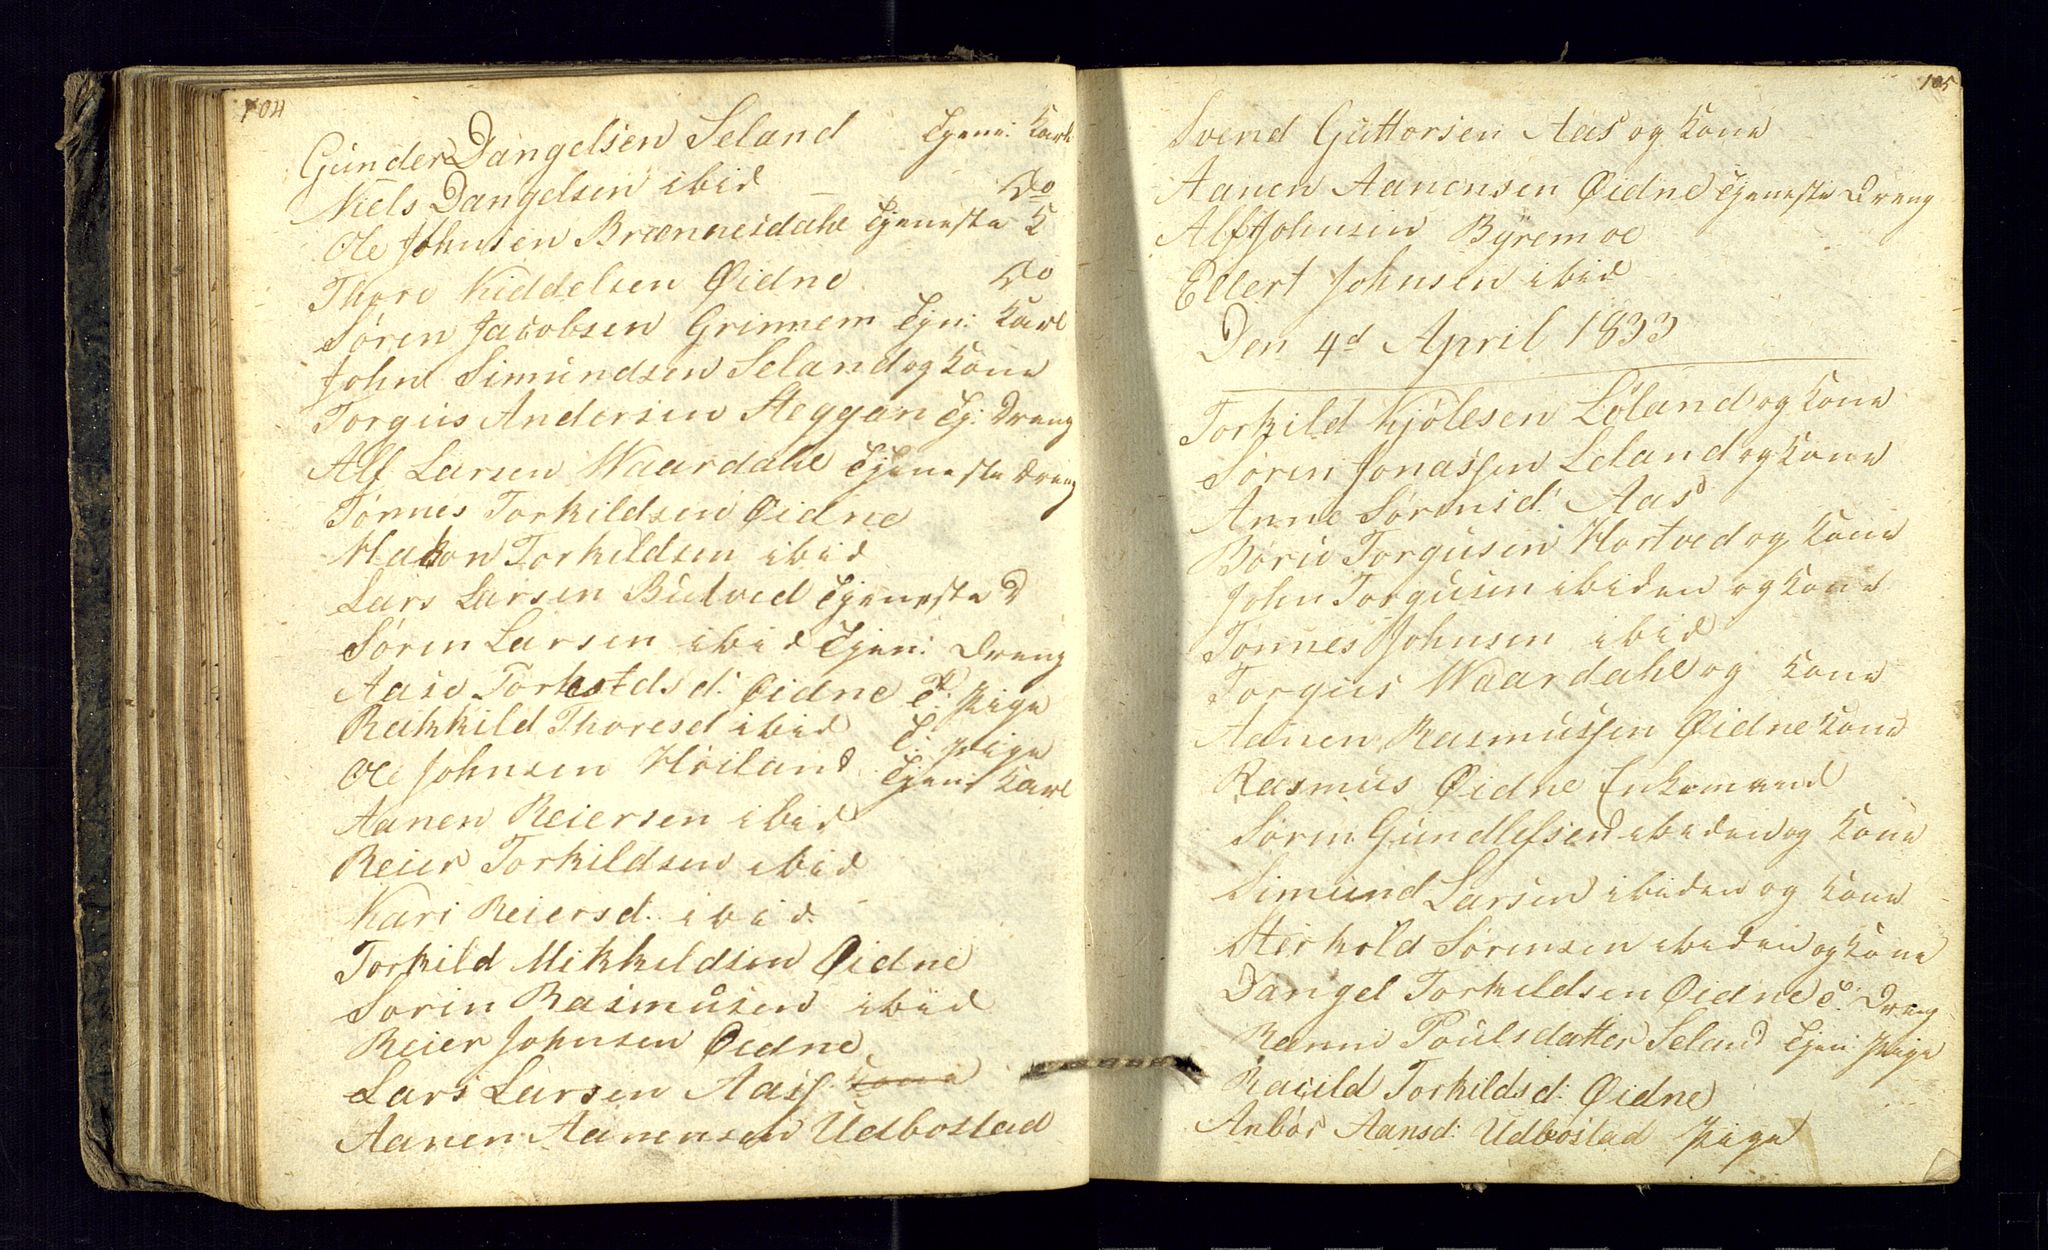 104
Gunder Dangelsen Seland Tjene: Karl
Niels Dangelsen ibid — Do
Ole Johnsen Brønnesdahl Tjeneste K
Thore Kiddelsen Øidne Do
Søren Jacobsen Grinnem Tjn: Karl
John Simundsen Seland og Kone
Torgus Andersen Heggan Tj: Dreng
Alf Larsen Waardahl Tjeneste dreng
Tønnes Torkildsen Øidne
Hakon Torkildsen ibid
Lars Larsen Butved Tjeneste D
Søren Larsen ibid Tjen: Dreng
Aase Øidne T. Pige
Thoresd ibid T: Pige
Ole Johnsen Høiland Tjen: Karl
Aanen Reiersen ibid
Reier Torkildsen ibid
Kari Reiersd. ibid
Torkild Mikkeldsen Øidne
Sørin Rasmusen ibid
Reier Johnsen Øidne
Lars Larsen Aas Kone
Aanen Aanensen Udbostad
105
Svend Guttorsen Aas og Kone
Aanen Aanensen Øidne Tjeneste Dreng
Alf Johnsen Byremoe
Ellert Johnsen ibid
Den 4d April 1833
Torkild Kjølesen Løland og Kone
Søren Jonassen Leland og Kone
Anne Sørensd: Aas
Børie Torgusen Hortved og Kone
John Torgusen ibiden og Kone
Tønnes Johnsen ibid
Torgus Waardahl og Kone
Aanen Rasmussen Øidne Kone
Rasmus Øidne Enkemand
Sørin Gundlefsen ibiden og Kone
Simund Larsen ibiden og Kone
Sterkold Sørensen ibiden og Kone
Dangel Torkeldsen Øidne T: Dreng
Ranni Poulsdatter Seland Tjen: Pige
Racild Torkildsd: Øidne
Anbør Aansd: Udbostad Pige